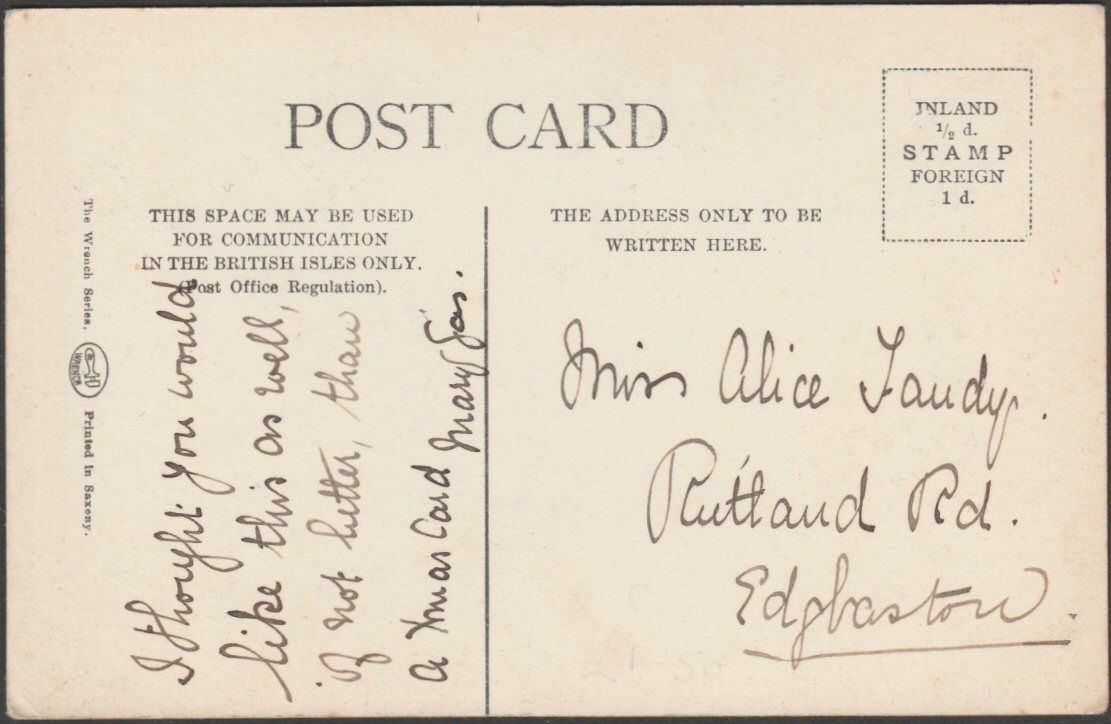 POST CARD
INLAND
1/2 d.
STAMP
FOREIGN
1 d.
THIS SPACE MAY BE USED
FOR COMMUNICATION
IN THE BRITISH ISLES ONLY.
(Post Office Regulation).
THE ADDRESS ONLY TO BE
WRITTEN HERE.
The Wrench Series.
WRENCH
Printed in Saxony.
I thought you would
like this as well,
if not better, than
a Xmas Card Mary
Miss Alice
Rutland Rd.
Edgbaston.